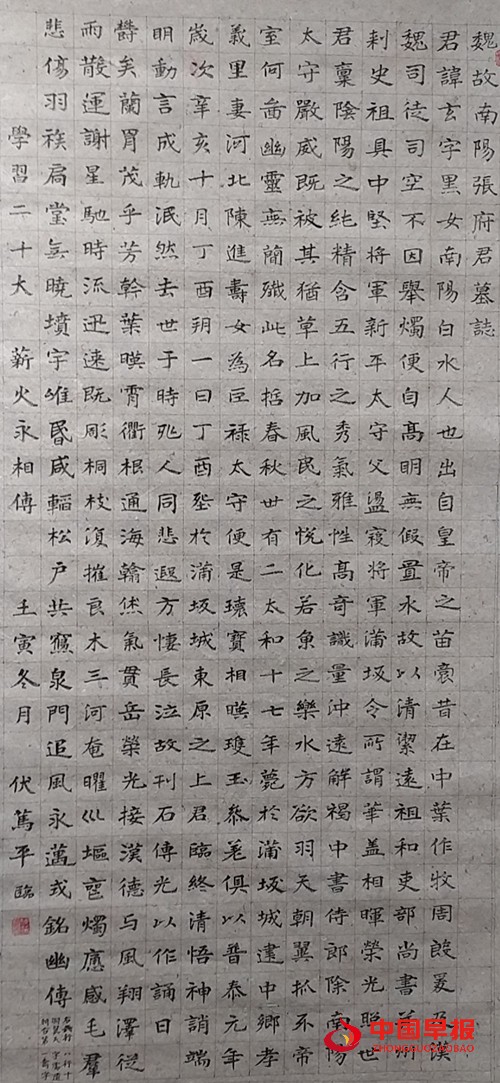 魏故南陽張府君墓誌
君諱玄字黑女南陽白水人也出自皇帝之苗裔昔在中葉作牧周殷爰及漢
魏司徒司空不因舉燭便自高明無假置水故以清潔遠祖和吏部尚書并州
刺史祖具中堅將軍新平太守父盪寇將軍蒲坂令所謂華蓋相暉榮光照世
君稟陰陽之純精含五行之秀氣雅性高奇識量沖遠解褐中書侍郎除南
太守嚴威既被其猶草上加風民之悅化若魚之樂水方欲羽天朝翼抓不帝
室何啚幽靈無簡殲此名哲春秋卅有二太和十七年薨於蒲坂城建中鄉孝
義里妻河北陳進壽女為巨祿太守便是瓌寶相暎瓊玉參差俱以普泰元年
歲次辛亥十月丁酉朔一日丁酉塟於蒲坂城東原之上君臨終清悟神誚端
明動言成軌泯然去世于時兆人同悲遐方悽長泣故刊石傳光以作誦曰
欝矣蘭胄茂乎芳幹葉暎霄衢根通海翰休氣貫岳榮光接漢德与風翔澤從
雨散運謝星馳時流迅速既彫桐枝復摧良木三河奄曜巛塸燭應感毛羣
悲傷羽族扃堂無曉墳宇唯昏咸輀松戶共寢泉門追風永邁式銘幽傳
學習二十大 薪火永相傳 壬寅冬月 伏篤平臨
中国早报
ZHONGGUOZAOBAO